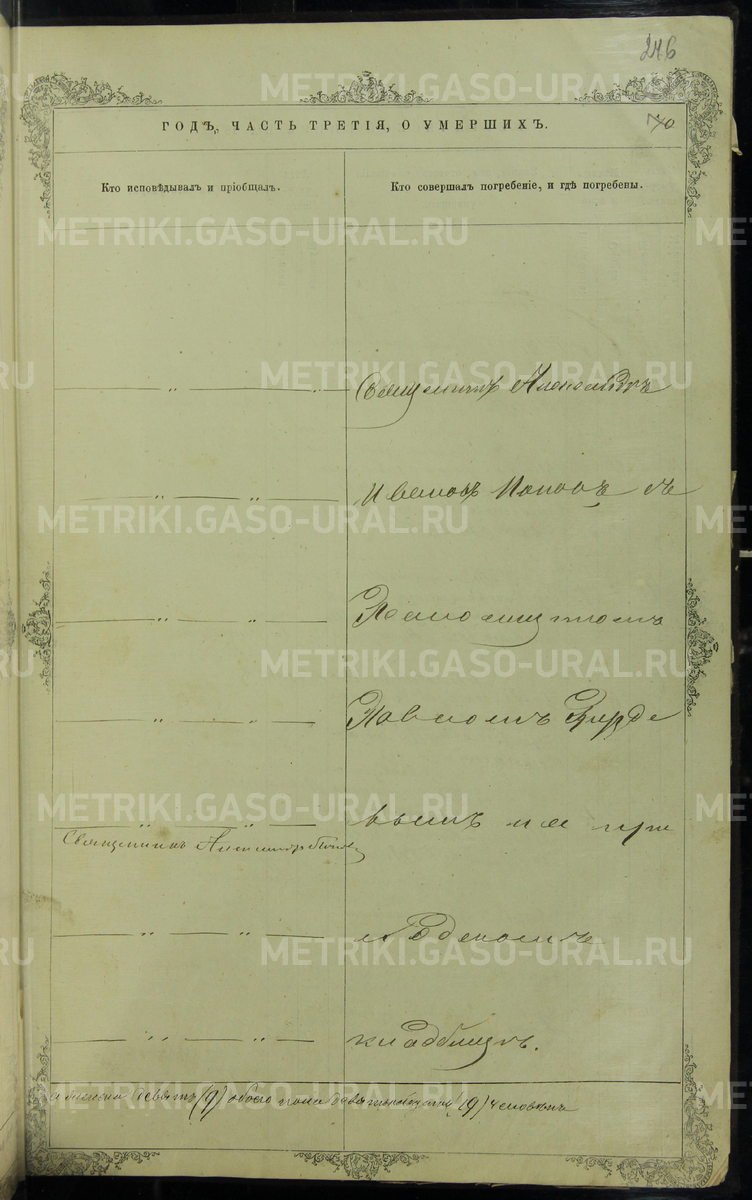 246
ГОДЪ, ЧАСТЬ ТРЕТІЯ, О УМЕРШИХЪ.
70
Кто исповѣдывалъ и пріобщалъ.
Кто совершалъ погребеніе, и гдѣ погребены.
Священникъ Александръ
Ивановъ Поповъ съ
Псаломщикомъ
Павломъ
вымъ на при
ходскомъ
Священникъ Александръ Попов
кладбищѣ.
девять (9) обоего пола девятнадцать (19) человѣкъ
METRIKI.GASO-URAL.RU